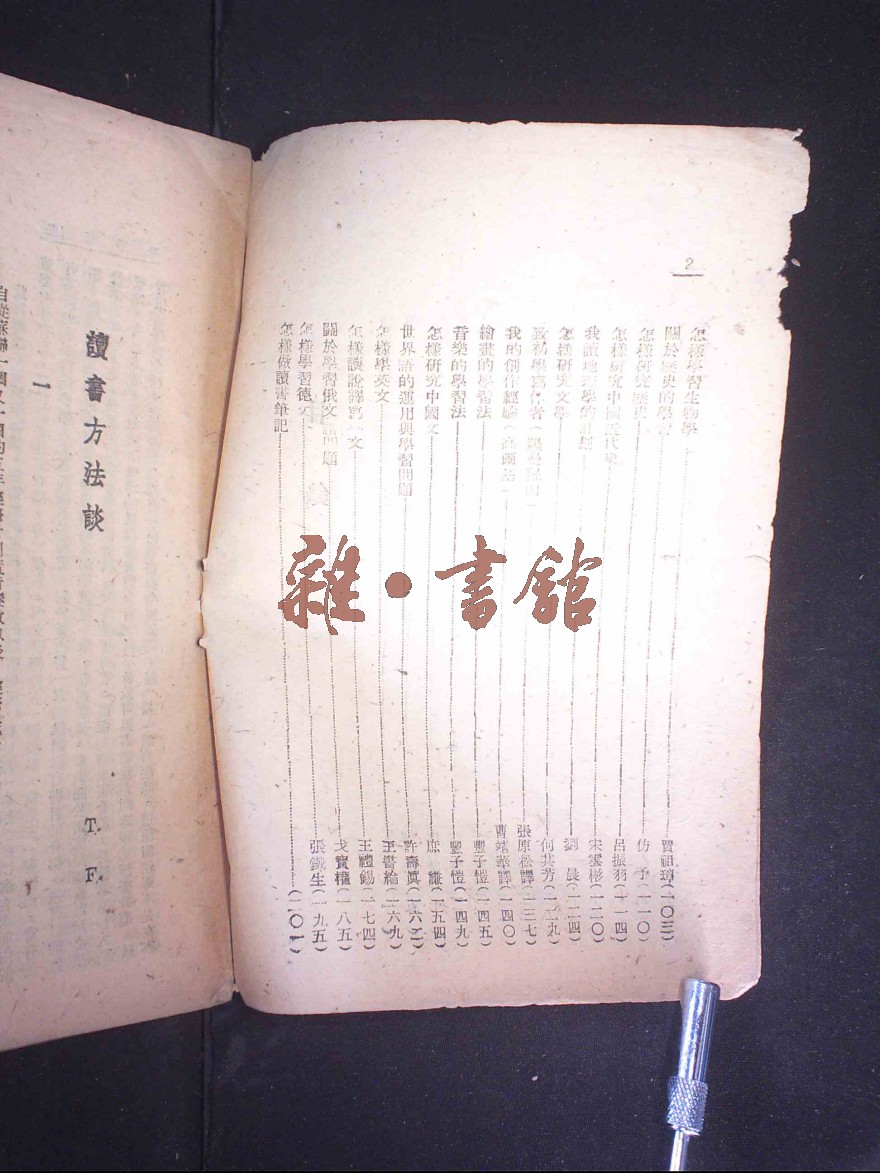 2
怎樣學習生物學……賈祖璋(一〇三)
關於歷史的學習……仿 予(一一〇)
怎樣研究歷史……呂振羽(一一四)
怎樣研究中國近代史……宋雲彬(一二〇)
我讀地理學的計劃……劉 晨(一二四)
怎樣研究文學……何其芳(一二九)
致初學寫作者……張原松譯(一三七)
我的創作經驗(高爾基)……曹靖華譯(一四〇)
繪畫的學習法……豐子愷(一四五)
音樂的學習法……豐子愷(一四九)
怎樣研究中國文……庶 謙(一五四)
世界語的運用與學習問題……許壽眞(一六二)
怎樣學英文……王書綸(一六九)
怎樣讀說譯寫 文……王禮錫(一七四)
關於學習俄文的問題……戈寶權(一八五)
怎樣學習德文……張鐵生(一九五)
怎樣做讀書筆記……(二〇一)
讀書方法談 T. F.
一
雜·書館